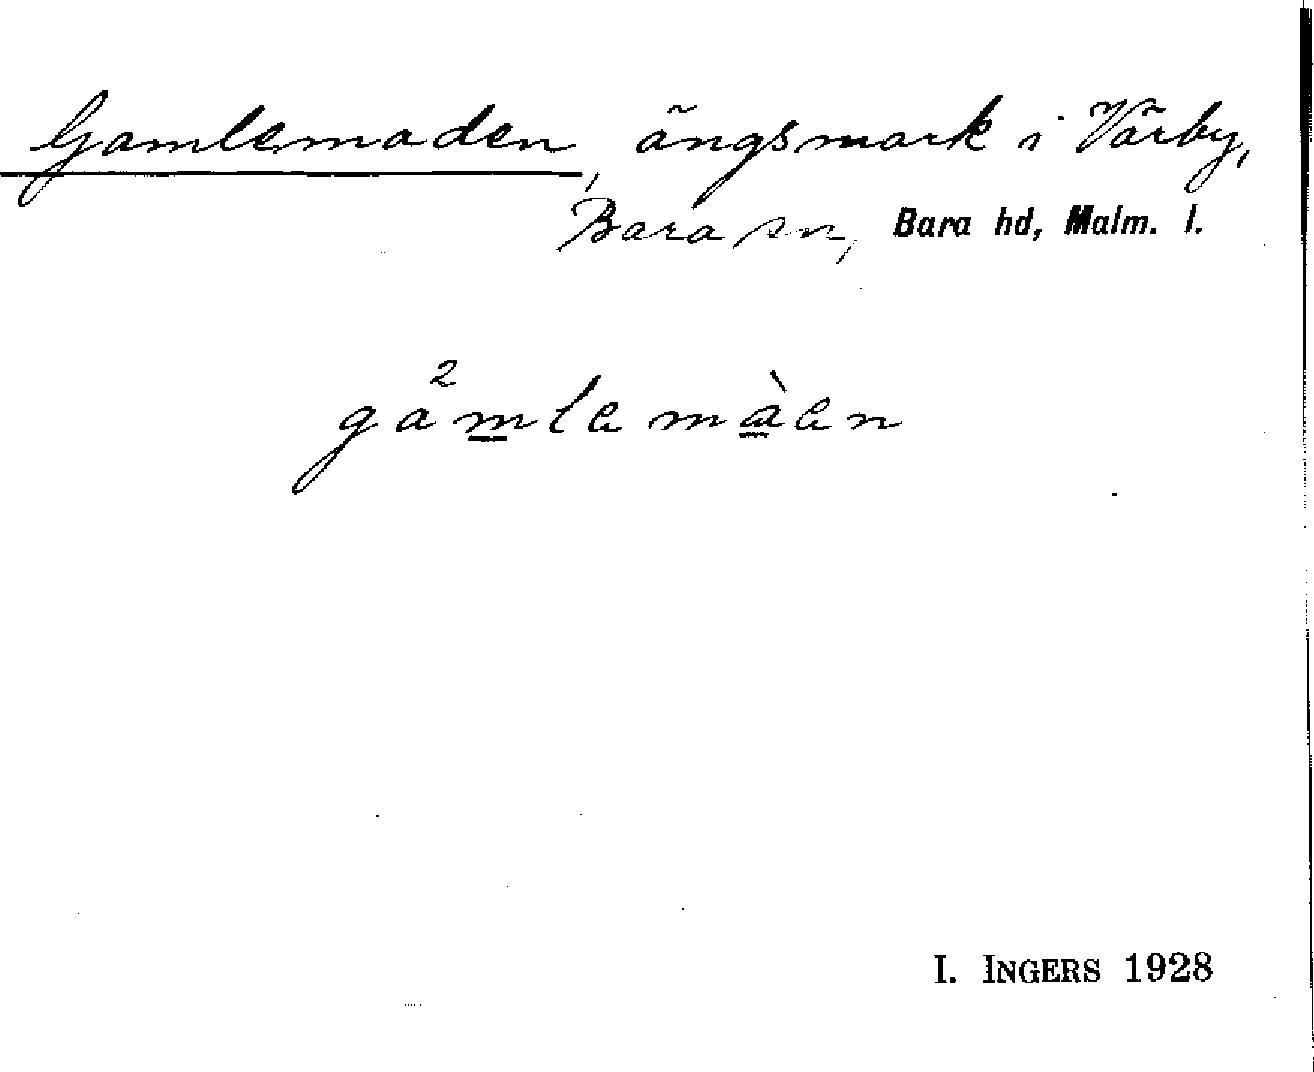 Gamlemaden, ängsmark i Värby,
Bara sn, Bara hd, Malm. l.
ga²mlemàen
I. INGERS 1928